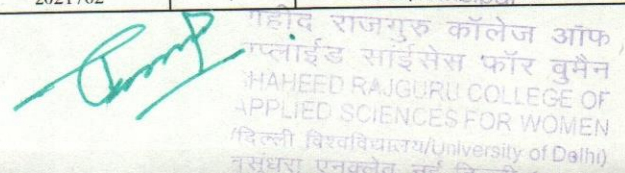 2021/02
शहीद राजगुरु कॉलेज ऑफ
एप्लाईड साईसेस फॉर वुमैन
SHAHEED RAJGURU COLLEGE OF
APPLIED SCIENCES FOR WOMEN
(दिल्ली विश्वविद्यालय/University of Delhi)
वसुंधरा एनक्लेव नई